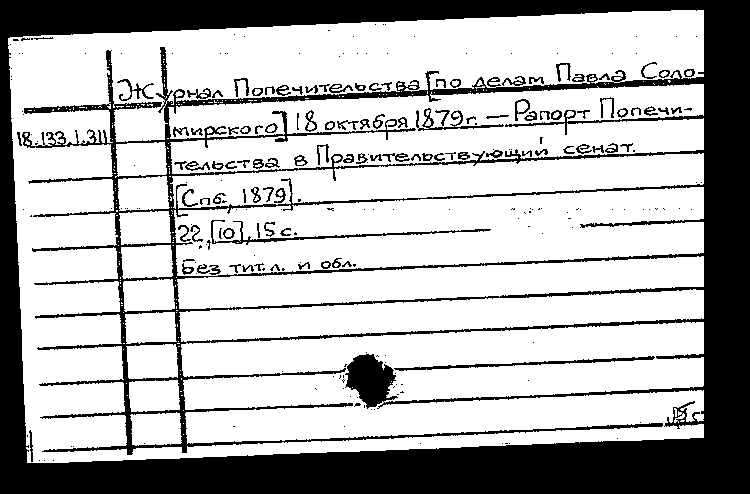 Журнал Попечительства [по делам Павла Соло-
18.133.1.311
мирского] 18 октября 1879 г. — Рапорт Попечи-
тельства в Правительствующий сенат.
[Спб, 1879].
22, [10], 15 с.
Без тит. л. и обл.